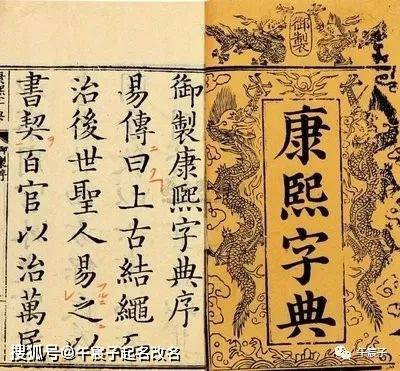 御製
康熙字典
御製康熙字典序
易傳曰上古結繩而
治後世聖人易之以
書契百官以治萬民
搜狐号@午宸子起名改名
午宸子